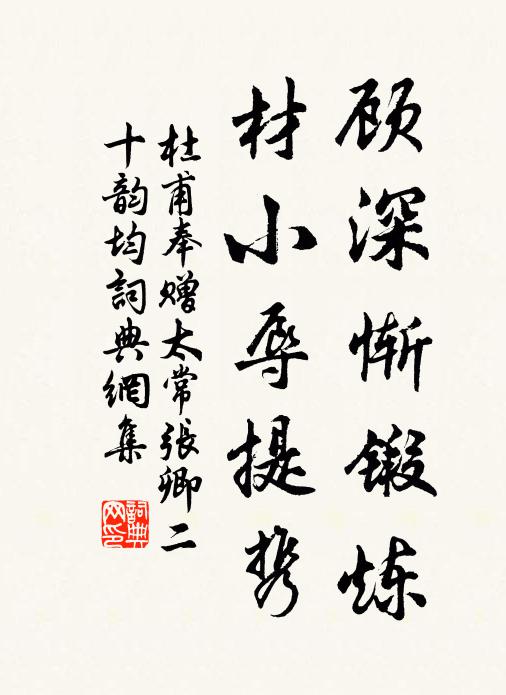 顾深惭锻炼
材小辱提携
杜甫奉赠太常張卿二
十韵均詞典網集
詞典网印